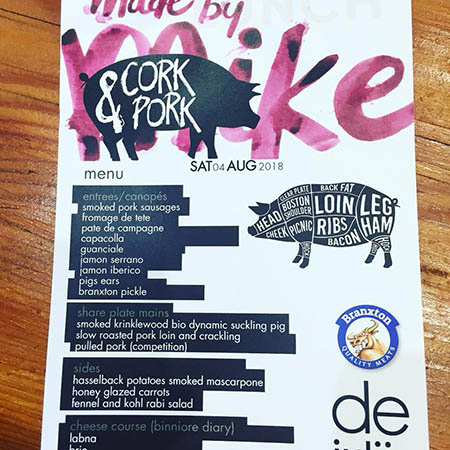 made by
LUNCH
mike
CORK
& PORK
SAT04 AUG 2018
menu
entrees/canapés
smoked pork sausages
fromage de tete
pate de campagne
capacolla
guanciale
jamon serrano
jamon iberico
pigs ears
branxton pickle
HEAD
CHEEK
CLEAR PLATE
BOSTON
SHOULDER
PICNIC
BACK FAT
LOIN
RIBS
BACON
LEG
HAM
share plate mains
smoked krinklewood bio dynamic suckling pig
slow roasted pork loin and crackling
pulled pork (competition)
Branxton
QUALITY MEATS
sides
hasselback potatoes smoked mascarpone
honey glazed carrots
fennel and kohl rabi salad
cheese course (binniore diary)
labna
brie
de